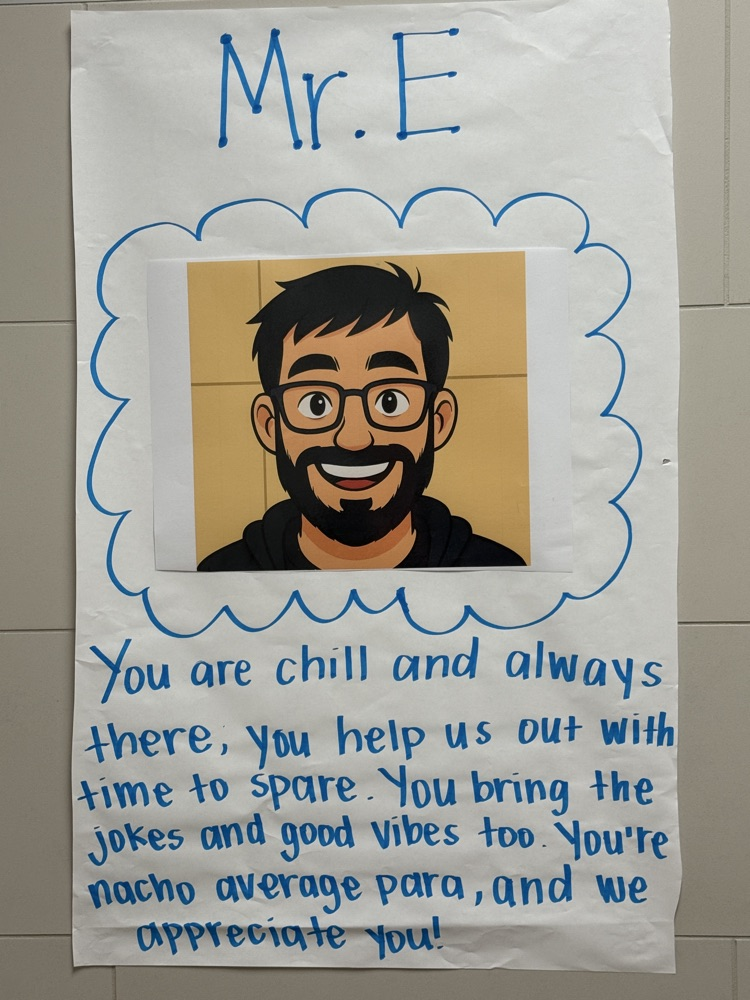 Mr. E
You are chill and always
there, you help us out with
time to spare. You bring the
jokes and good vibes too. You're
nacho average para, and we
appreciate you!